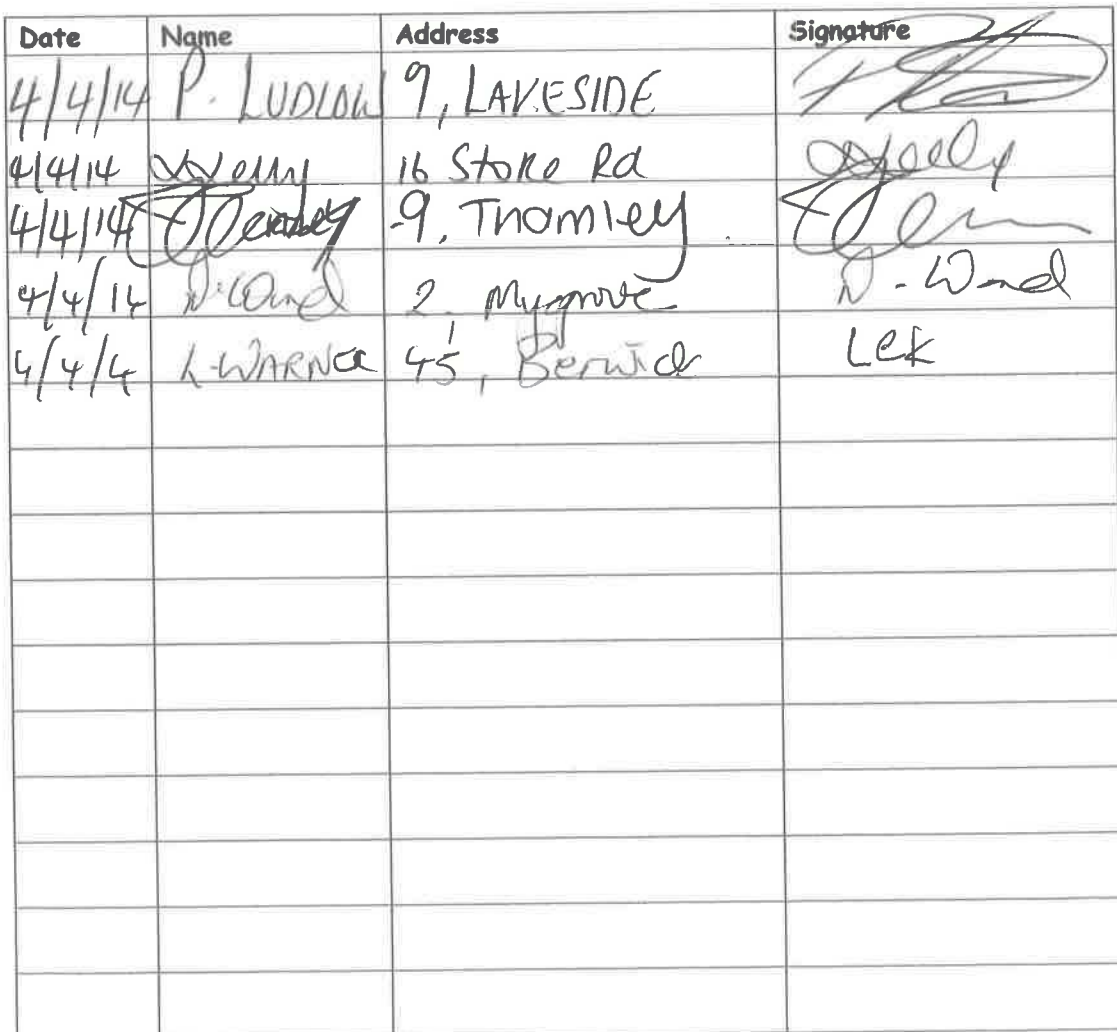 Date Name Address Signature
4/4/14 P. LUDLOW 9, LAKESIDE
4/4/14 16 Stoke Rd
4/4/14 9, Thomley
4/4/14 N. Ward 2, Mygrove N. Ward
4/4/4 L. WARNER 45, Berwick Lek